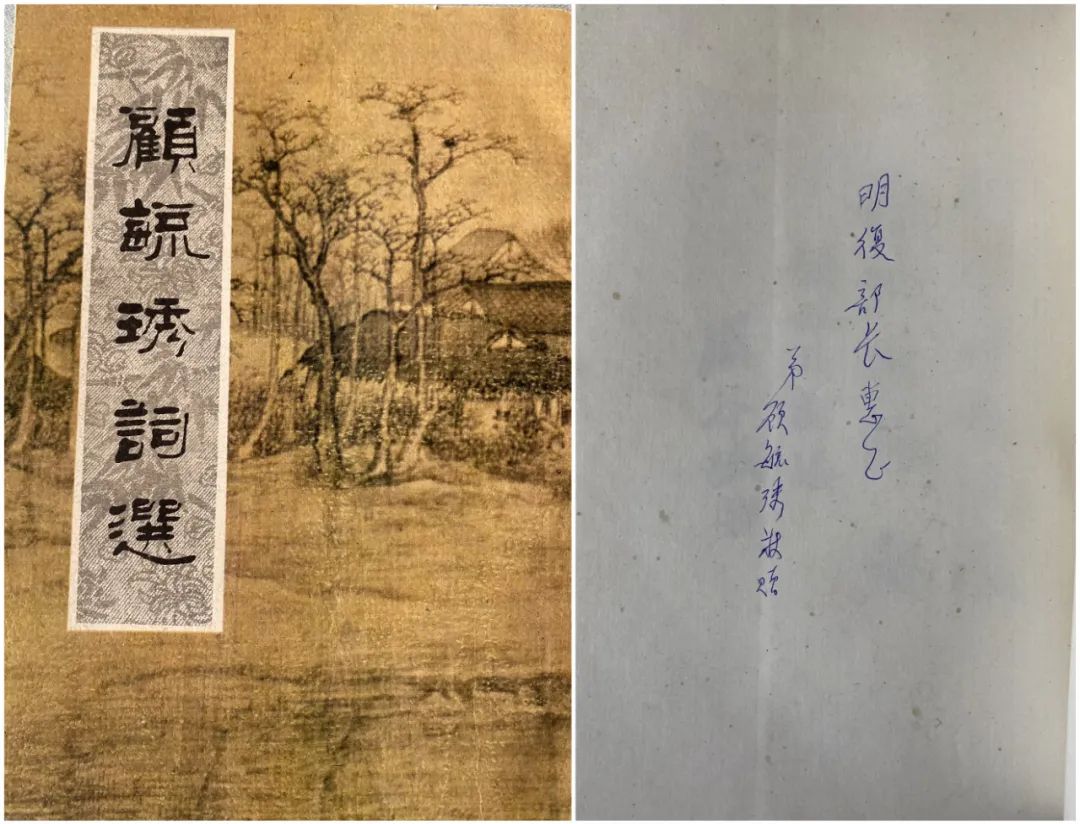 顧毓琇詞選
明復部长惠正
弟顾毓琇敬赠